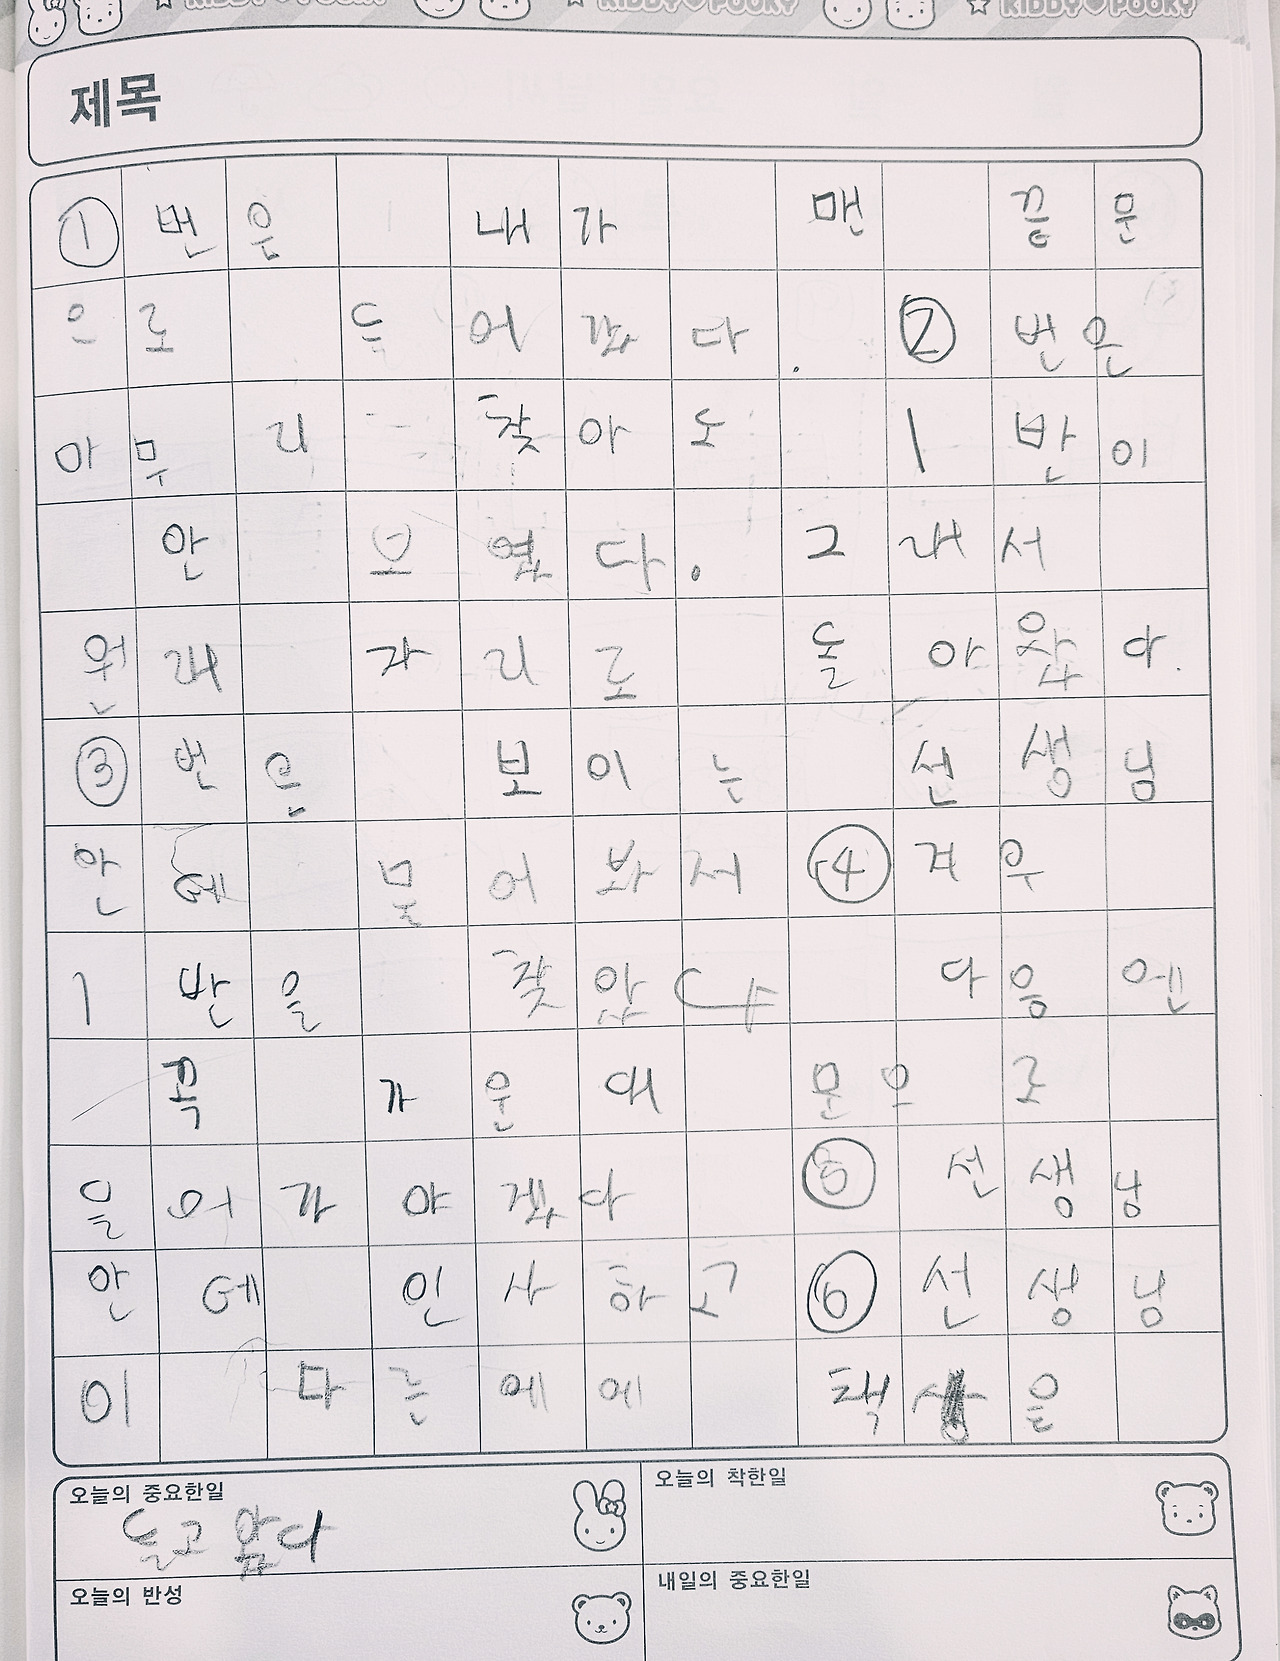 KIDDY♥POOKY KIDDY♥POOKY KIDDY♥POOKY
제목
①번은 내가 맨 끝문
으로 들어갔다. ②번은
아무리 찾아도 1반이
안 보였다. 그래서
원래 자리로 돌아왔다.
③번은 보이는 선생님
안테 물어봐서 ④겨우
1반을 찾았다 다음엔
꼭 가운데 문으로
들어가야겠다 ⑤선생님
안테 인사하고 ⑥선생님
이 다른에에 책상을
오늘의 중요한일
들고 왔다
오늘의 착한일
오늘의 반성
내일의 중요한일